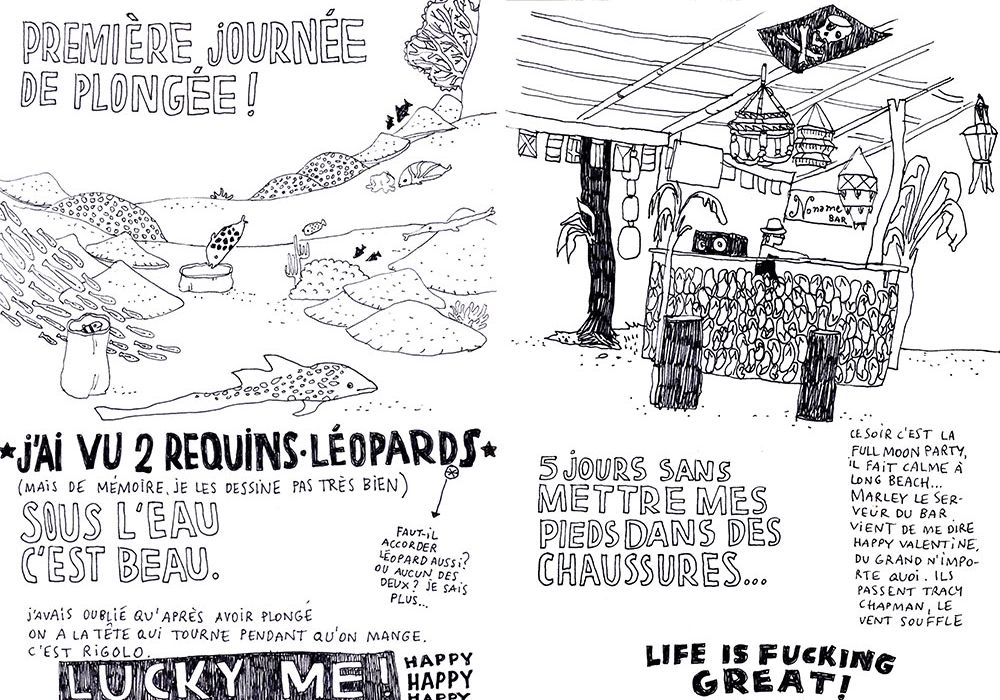 PREMIÈRE JOURNÉE
DE PLONGÉE !
★J'AI VU 2 REQUINS-LÉOPARDS★
(MAIS DE MÉMOIRE, JE LES DESSINE PAS TRÈS BIEN)
SOUS L'EAU
C'EST BEAU.
FAUT-IL
ACCORDER
LÉOPARD AUSSI?
OU AUCUN DES
DEUX? JE SAIS
PLUS...
J'AVAIS OUBLIÉ QU'APRÈS AVOIR PLONGÉ
ON A LA TÊTE QUI TOURNE PENDANT QU'ON MANGE.
C'EST RIGOLO.
LUCKY ME!
HAPPY
HAPPY
HAPPY
Noname
BAR
5 JOURS SANS
METTRE MES
PIEDS DANS DES
CHAUSSURES...
CE SOIR C'EST LA
FULL MOON PARTY,
IL FAIT CALME À
LONG BEACH...
MARLEY LE SER-
VEUR DU BAR
VIENT DE ME DIRE
HAPPY VALENTINE,
DU GRAND N'IMPO-
RTE QUOI. ILS
PASSENT TRACY
CHAPMAN, LE
VENT SOUFFLE
LIFE IS FUCKING
GREAT!